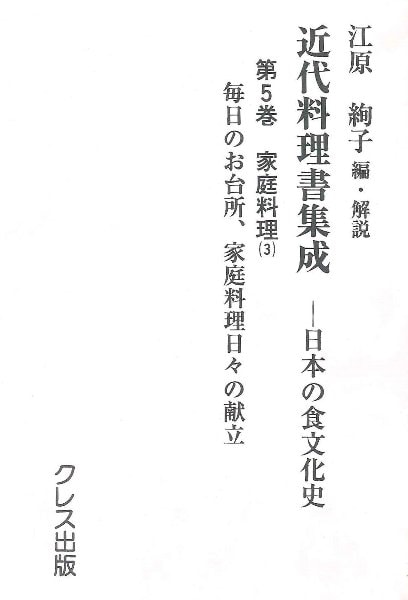 江原 絢子 編・解説
近代料理書集成 ―日本の食文化史
第5巻 家庭料理(3)
毎日のお台所、家庭料理日々の献立
クレス出版